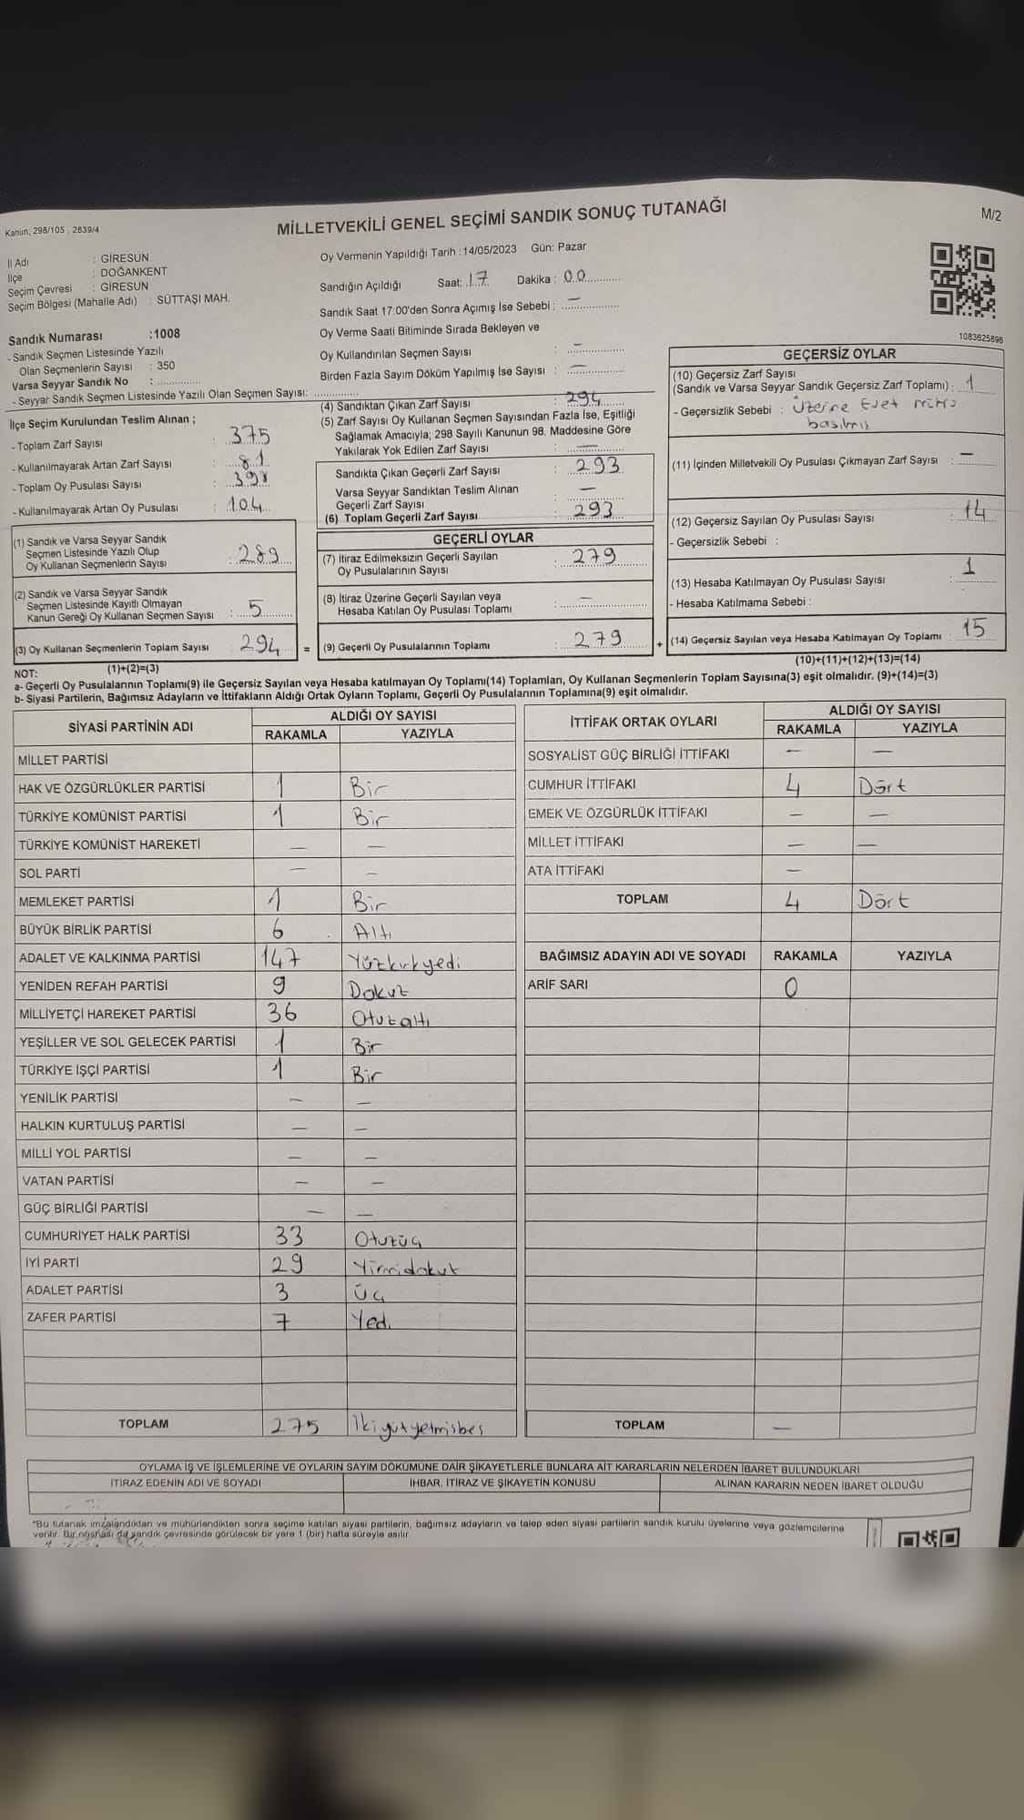 Kanun, 298/105 , 2839/4
MİLLETVEKİLİ GENEL SEÇİMİ SANDIK SONUÇ TUTANAĞI
M/2
İl Adı : GİRESUN
İlçe : DOĞANKENT
Seçim Çevresi : GİRESUN
Seçim Bölgesi (Mahalle Adı) : SÜTTAŞI MAH.
Oy Vermenin Yapıldığı Tarih : 14/05/2023 Gün: Pazar
Sandığın Açıldığı Saat: 17 Dakika : 00
Sandık Saat 17:00'den Sonra Açımış İse Sebebi : —
Oy Verme Saati Bitiminde Sırada Bekleyen ve
Oy Kullandırılan Seçmen Sayısı : —
Birden Fazla Sayım Döküm Yapılmış İse Sayısı : —
1083625898
Sandık Numarası :1008
- Sandık Seçmen Listesinde Yazılı
Olan Seçmenlerin Sayısı : 350
Varsa Seyyar Sandık No :
- Seyyar Sandık Seçmen Listesinde Yazılı Olan Seçmen Sayısı:
İlçe Seçim Kurulundan Teslim Alınan ;
- Toplam Zarf Sayısı : 375
- Kullanılmayarak Artan Zarf Sayısı : 81
- Toplam Oy Pusulası Sayısı : 398
- Kullanılmayarak Artan Oy Pusulası : 104
(1) Sandık ve Varsa Seyyar Sandık
Seçmen Listesinde Yazılı Olup
Oy Kullanan Seçmenlerin Sayısı : 289
(2) Sandık ve Varsa Seyyar Sandık
Seçmen Listesinde Kayıtlı Olmayan
Kanun Gereği Oy Kullanan Seçmen Sayısı : 5
(3) Oy Kullanan Seçmenlerin Toplam Sayısı : 294 =
(4) Sandıktan Çıkan Zarf Sayısı : 294
(5) Zarf Sayısı Oy Kullanan Seçmen Sayısından Fazla İse, Eşitliği
Sağlamak Amacıyla; 298 Sayılı Kanunun 98. Maddesine Göre
Yakılarak Yok Edilen Zarf Sayısı : —
Sandıkta Çıkan Geçerli Zarf Sayısı : 293
Varsa Seyyar Sandıktan Teslim Alınan
Geçerli Zarf Sayısı : —
(6) Toplam Geçerli Zarf Sayısı : 293
GEÇERLİ OYLAR
(7) İtiraz Edilmeksizin Geçerli Sayılan
Oy Pusulalarının Sayısı : 279
(8) İtiraz Üzerine Geçerli Sayılan veya
Hesaba Katılan Oy Pusulası Toplamı : —
(9) Geçerli Oy Pusulalarının Toplamı : 279 +
GEÇERSİZ OYLAR
(10) Geçersiz Zarf Sayısı
(Sandık ve Varsa Seyyar Sandık Geçersiz Zarf Toplamı) : 1
- Geçersizlik Sebebi : Üzerine Evet mührü
basılmış
(11) İçinden Milletvekili Oy Pusulası Çıkmayan Zarf Sayısı : —
(12) Geçersiz Sayılan Oy Pusulası Sayısı : 14
- Geçersizlik Sebebi :
(13) Hesaba Katılmayan Oy Pusulası Sayısı : 1
- Hesaba Katılmama Sebebi :
(14) Geçersiz Sayılan veya Hesaba Katılmayan Oy Toplamı : 15
NOT: (1)+(2)=(3)
(10)+(11)+(12)+(13)=(14)
a- Geçerli Oy Pusulalarının Toplamı(9) ile Geçersiz Sayılan veya Hesaba katılmayan Oy Toplamı(14) Toplamları, Oy Kullanan Seçmenlerin Toplam Sayısına(3) eşit olmalıdır. (9)+(14)=(3)
b- Siyasi Partilerin, Bağımsız Adayların ve İttifakların Aldığı Ortak Oyların Toplamı, Geçerli Oy Pusulalarının Toplamına(9) eşit olmalıdır.
SİYASİ PARTİNİN ADI ALDIĞI OY SAYISI
RAKAMLA YAZIYLA
MİLLET PARTİSİ
HAK VE ÖZGÜRLÜKLER PARTİSİ 1 Bir
TÜRKİYE KOMÜNİST PARTİSİ 1 Bir
TÜRKİYE KOMÜNİST HAREKETİ — —
SOL PARTİ — —
MEMLEKET PARTİSİ 1 Bir
BÜYÜK BİRLİK PARTİSİ 6 Altı
ADALET VE KALKINMA PARTİSİ 147 Yüzkırkyedi
YENİDEN REFAH PARTİSİ 9 Dokuz
MİLLİYETÇİ HAREKET PARTİSİ 36 Otuzaltı
YEŞİLLER VE SOL GELECEK PARTİSİ 1 Bir
TÜRKİYE İŞÇİ PARTİSİ 1 Bir
YENİLİK PARTİSİ — —
HALKIN KURTULUŞ PARTİSİ — —
MİLLİ YOL PARTİSİ — —
VATAN PARTİSİ — —
GÜÇ BİRLİĞİ PARTİSİ — —
CUMHURİYET HALK PARTİSİ 33 Otuzüç
İYİ PARTİ 29 Yirmidokuz
ADALET PARTİSİ 3 Üç
ZAFER PARTİSİ 7 Yedi
TOPLAM 275 İkiyüzyetmişbeş
İTTİFAK ORTAK OYLARI ALDIĞI OY SAYISI
RAKAMLA YAZIYLA
SOSYALİST GÜÇ BİRLİĞİ İTTİFAKI — —
CUMHUR İTTİFAKI 4 Dört
EMEK VE ÖZGÜRLÜK İTTİFAKI — —
MİLLET İTTİFAKI — —
ATA İTTİFAKI —
TOPLAM 4 Dört
BAĞIMSIZ ADAYIN ADI VE SOYADI RAKAMLA YAZIYLA
ARİF SARI 0
TOPLAM —
OYLAMA İŞ VE İŞLEMLERİNE VE OYLARIN SAYIM DÖKÜMÜNE DAİR ŞİKAYETLERLE BUNLARA AİT KARARLARIN NELERDEN İBARET BULUNDUKLARI
İTİRAZ EDENİN ADI VE SOYADI İHBAR, İTİRAZ VE ŞİKAYETİN KONUSU ALINAN KARARIN NEDEN İBARET OLDUĞU
*Bu tutanak imzalandıktan ve mühürlendikten sonra seçime katılan siyasi partilerin, bağımsız adayların ve talep eden siyasi partilerin sandık kurulu üyelerine veya gözlemcilerine
verilir. Bir nüshası da sandık çevresinde görülecek bir yere 1 (bir) hafta süreyle asılır.